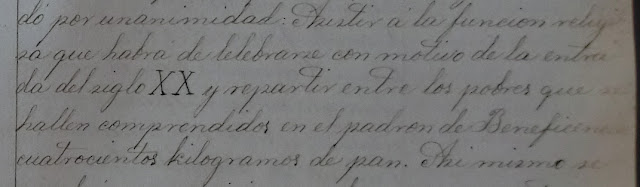 dó por unanimidad: Asistir á la funcion religi
sa que habrá de celebrarse con motivo de la entra
da del siglo XX y repartir entre los pobres que se
hallen comprendidos en el padron de Beneficenc
cuatrocientos kilogramos de pan. Asi mismo se